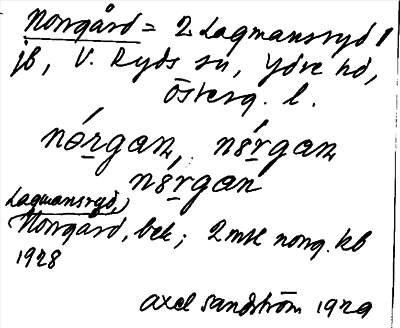 Norrgård = 2 Lagmansryd 1
jb, V. Ryds sn, Ydre hd,
Österg. l.
nórgan, nórgan
nórgan
Lagmansryd,
Norrgård, bek; 2 mtl norrg. kb
1928
Axel Sandström 1929